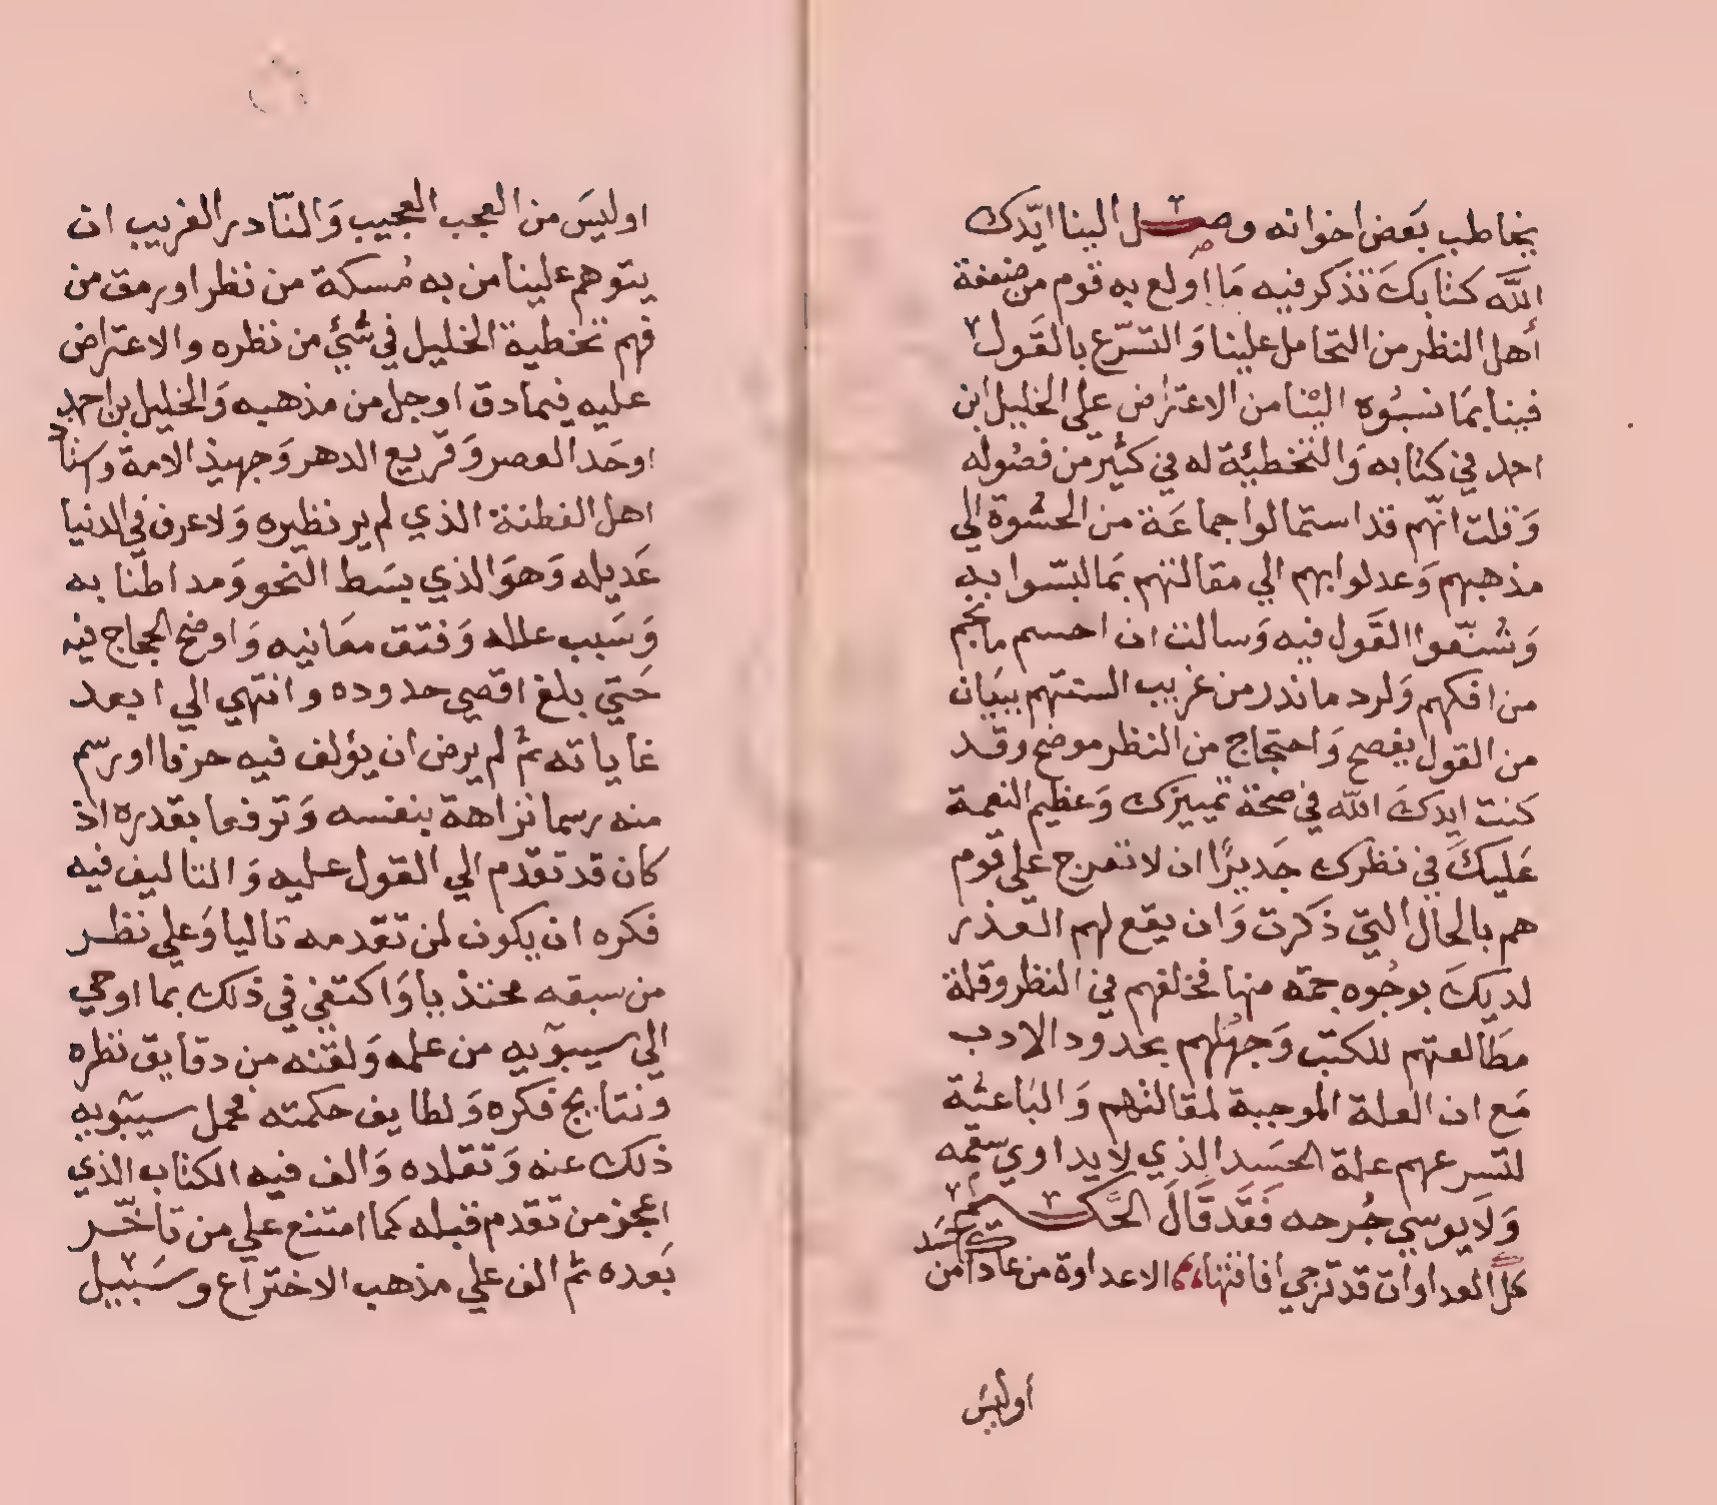 يخاطب بَعض اخوانه وصـل الينا ايّدك
اللَّه كتابكَ تذكر فيه مَا اولع به قوم من ضعفة
أهل النظر من التحامل علينا وَالتسرّع بالقَول
فينا بمَا نسبُوه اليْنا من الاعتراض على الخليل ابن
احمد في كتابه وَالتخطيئة له في كثير من فصُوله
وَقلت انّهم قد استمالوا جماعَة من الحشوة الي
مذهبهم وَعدلوا بهم الي مقالتهم بمَا لبسّوا به
وَشنّعوا القَول فيه وَسالت ان احسم ما نجم
من افكهم وَلرد ما ندر من غريب السنتهم ببيَان
من القول يفصح وَاحتجاج من النظر موضح وقد
كنت ايدكَ اللّه في صحة تمييزك وَعظيم النعمة
عَليكَ في نظرك جَديرًا ان لا تعرج علي قوم
هم بالحال التي ذكرت وَان يقع لهم العذر
لديكَ بوجُوه جمّة منها تخلفهم في النظر وقلة
مطَالعتهم للكتب وَجهْلهم بحدود الادب
مَع ان العلة الموجبة لمقالتهم وَالباعثة
لتسرعهم علة الحسَد الذي لا يداوي سقمه
وَلَا يوسي جُرحه فَقَد قَالَ الحَكـيم
كلّ العداوات قد ترجي افاقتها الا عداوة من عاداك من حسَد
اوليسَ
اوليسَ من العجب العجيب وَالنّادر الغريب ان
يتوهم علينا من به مُسكة من نظر او رمق من
فهم تخطية الخليل في شَئ من نظره والاعتراض
عليه فيما دق او جل من مذهبه وَالخليل بن احمد
اوحَد العصر وَقريع الدهر وَجهبذ الامة واستاذ
اهل الفطنة الذي لم ير نظيره وَلا عرف في الدنيا
عَديله وَهوَ الذي بسَط النحو وَمد اطنابه
وَسَبب علله وَفتق معَانيه وَاوضح الحجاج فيه
حَتي بلغ اقصي حدوده وانتهي الي ابعد
غاياته ثم لم يرض ان يؤلف فيه حرفا او رسّم
منه رسما نزاهة بنفسه وَترفعا بقدره اذ
كان قد تقدم الي القول عليه وَالتاليف فيه
فكره ان يكون لمن تقدمه تاليا وَعلي نظر
من سبقه محتذيا وَاكتفي في ذلك بما اوحي
الي سيبوَيه من علمه وَلقنه من دقايق نظره
ونتايج فكره وَلطايف حكمته فحمل سيبوَيه
ذلك عنه وَتقلده وَالف فيه الكتاب الذي
اعجز من تقدم قبله كما امتنع علي من تاخّر
بَعده ثم الف علي مذهب الاختراع وسَبيل